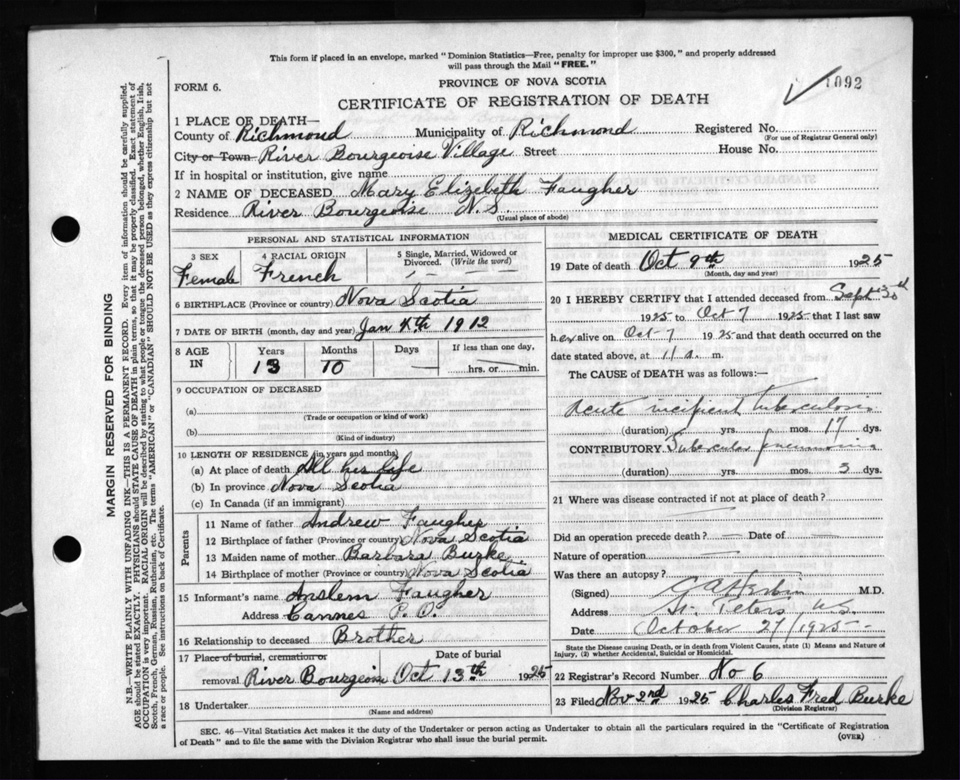 This form if placed in an envelope, marked "Dominion Statistics—Free, penalty for improper use $300," and properly addressed
will pass through the Mail "FREE."
1092
FORM 6.
PROVINCE OF NOVA SCOTIA
CERTIFICATE OF REGISTRATION OF DEATH
1 PLACE OF DEATH—
County of Richmond Municipality of Richmond Registered No.
(For use of Registrar General only)
City or Town River Bourgeoise Village Street House No.
If in hospital or institution, give name
2 NAME OF DECEASED Mary Elizebeth Faugher
Residence River Bourgeoise N.S.
(Usual place of abode)
PERSONAL AND STATISTICAL INFORMATION
3 SEX 4 RACIAL ORIGIN 5 Single, Married, Widowed or
Divorced. (Write the word)
Female French
6 BIRTHPLACE (Province or country) Nova Scotia
7 DATE OF BIRTH (month, day and year) Jan 4th 1912
8 AGE IN Years Months Days If less than one day,
13 10 — hrs. or min.
9 OCCUPATION OF DECEASED
(a)
(Trade or occupation or kind of work)
(b)
(Kind of industry)
10 LENGTH OF RESIDENCE (in years and months)
(a) At place of death All his life
(b) In province Nova Scotia
(c) In Canada (if an immigrant)
Parents
11 Name of father Andrew Faugher
12 Birthplace of father (Province or country) Nova Scotia
13 Maiden name of mother Barbara Burke
14 Birthplace of mother (Province or country) Nova Scotia
15 Informant's name Anslem Faugher
Address Cannes P.O.
16 Relationship to deceased Brother
17 Place of burial, cremation or Date of burial
removal River Bourgeoise Oct 13th 1925
18 Undertaker
(Name and address)
MEDICAL CERTIFICATE OF DEATH
19 Date of death Oct 9th 1925
(Month, day and year)
20 I HEREBY CERTIFY that I attended deceased from Sept
1925 to Oct 7 1925 that I last saw
her alive on Oct 7 1925 and that death occurred on the
date stated above, at m.
The CAUSE of DEATH was as follows:—
Acute incipient tuberculosis
(duration) yrs. mos. 17 dys.
CONTRIBUTORY Tubercular pneumonia
(duration) yrs. mos. 3 dys.
21 Where was disease contracted if not at place of death?
Did an operation precede death? — Date of —
Nature of operation
Was there an autopsy?
(Signed) M.D.
Address St. Peters, N.S.
Date October 27/1925
State the Disease causing Death, or in death from Violent Causes, state (1) Means and Nature of
Injury, (2) whether Accidental, Suicidal or Homicidal.
22 Registrar's Record Number No 6
23 Filed Nov 2nd 1925 Charles Fred Burke
(Division Registrar)
SEC. 46—Vital Statistics Act makes it the duty of the Undertaker or person acting as Undertaker to obtain all the particulars required in the "Certificate of Registration
of Death" and to file the same with the Division Registrar who shall issue the burial permit.
(OVER)
MARGIN RESERVED FOR BINDING
N.B.—WRITE PLAINLY WITH UNFADING INK—THIS IS A PERMANENT RECORD. Every item of information should be carefully supplied.
AGE should be stated EXACTLY. PHYSICIANS should STATE CAUSE OF DEATH in plain terms, so that it may be properly classified. Exact statement of
OCCUPATION is very important. RACIAL ORIGIN will be described by stating to what people or tongue the deceased person belonged, whether English, Irish,
Scotch, French, German, Russian, Ruthenian, etc. The terms "AMERICAN" or "CANADIAN" SHOULD NOT BE USED as they express citizenship but not
a race or people. See instructions on back of Certificate.